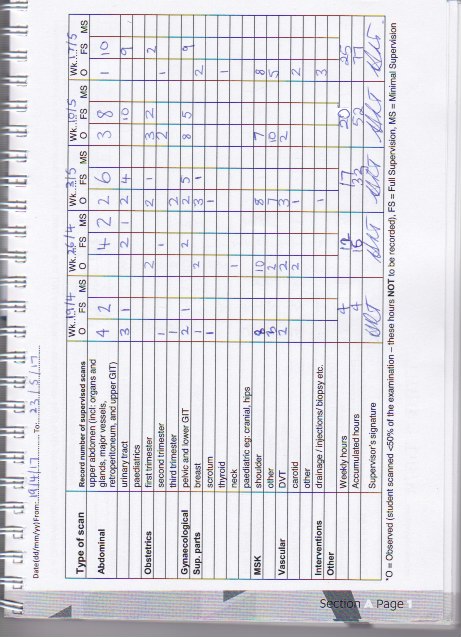 Date(dd/mm/yy)From: 19/4/17 To: 23/5/17
Type of scan Record number of supervised scans Wk. 19/4 Wk. 26/4 Wk. 3/5 Wk. 10/5 Wk. 17/5
O FS MS O FS MS O FS MS O FS MS O FS MS
Abdominal upper abdomen (incl: organs and 4 2 4 2 2 6 3 8 1 10
glands, major vessels,
retroperitoneum, and upper GIT)
urinary tract 3 1 2 1 2 4 10 9
paediatrics
Obstetrics first trimester 2 2 1 3 2 2
second trimester 1 1 2 1
third trimester 1 2
Gynaecological pelvic and lower GIT 2 1 2 2 5 8 5 9
Sup. parts breast 1 2 3 1 2
scrotum 1 1
thyroid 1
neck 1
paediatric eg: cranial, hips
MSK shoulder 8 10 8 7 8
other 3 2 7 10 5
Vascular DVT 2 2 3 2
carotid 2 1 2
other
Interventions drainage / injections/ biopsy etc. 1 3
Other
Weekly hours 4 12 17 20 25
Accumulated hours 4 16 52 77
Supervisor's signature
*O = Observed (student scanned <50% of the examination – these hours NOT to be recorded), FS = Full Supervision, MS = Minimal Supervision
Section A Page 1